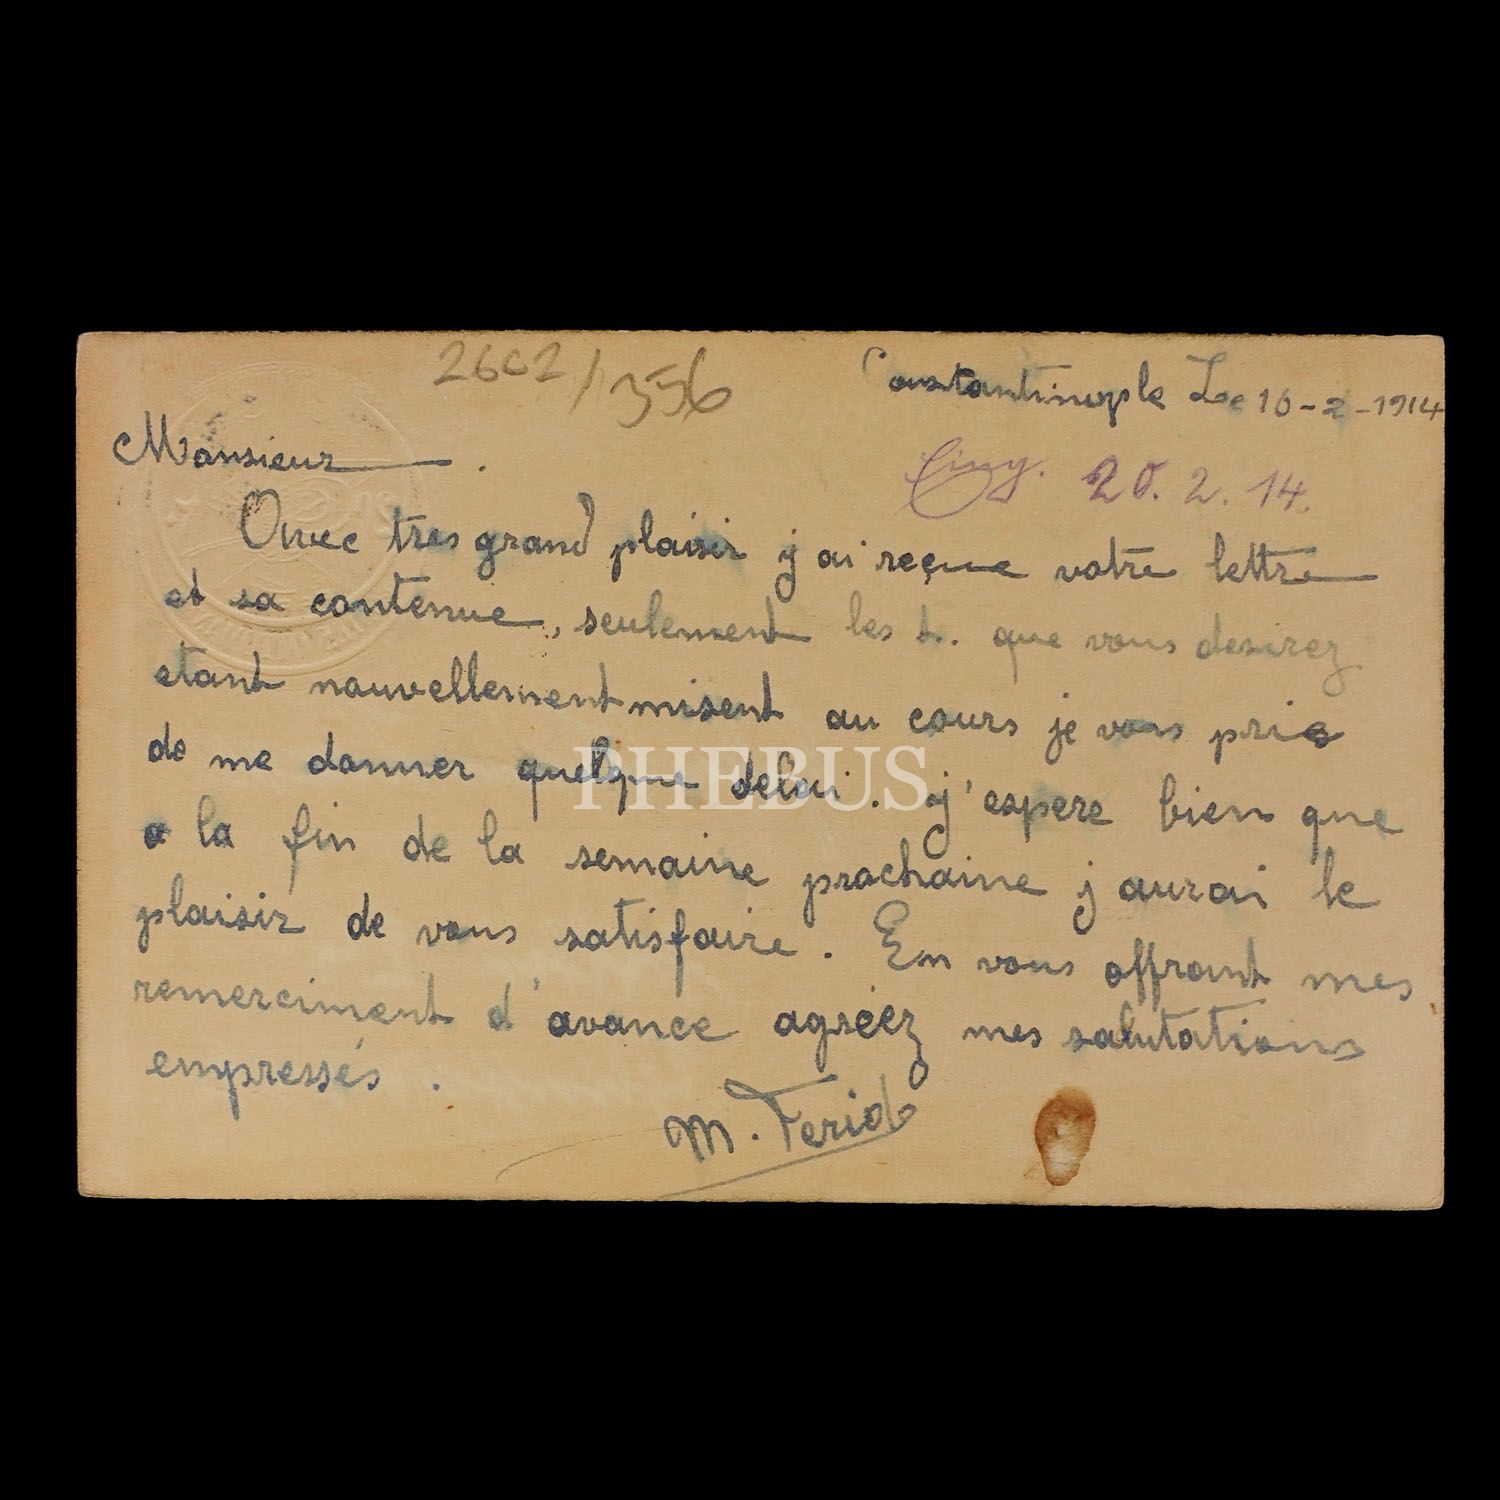 2602/356
Constantinople Le 16-2-1914
Monsieur .
20. 2. 14.
Avec tres grand plaisir j'ai reçue votre lettre
et sa contenue, seulement les t. que vous desirez
etant nouvellement misent au cours je vous prie
de me donner quelque delai. j'espere bien que
a la fin de la semaine prochaine j aurai le
plaisir de vous satisfaire. En vous offrant mes
remerciment d'avance agréez mes salutations
empressés .
M. Ferid
PHEBUS